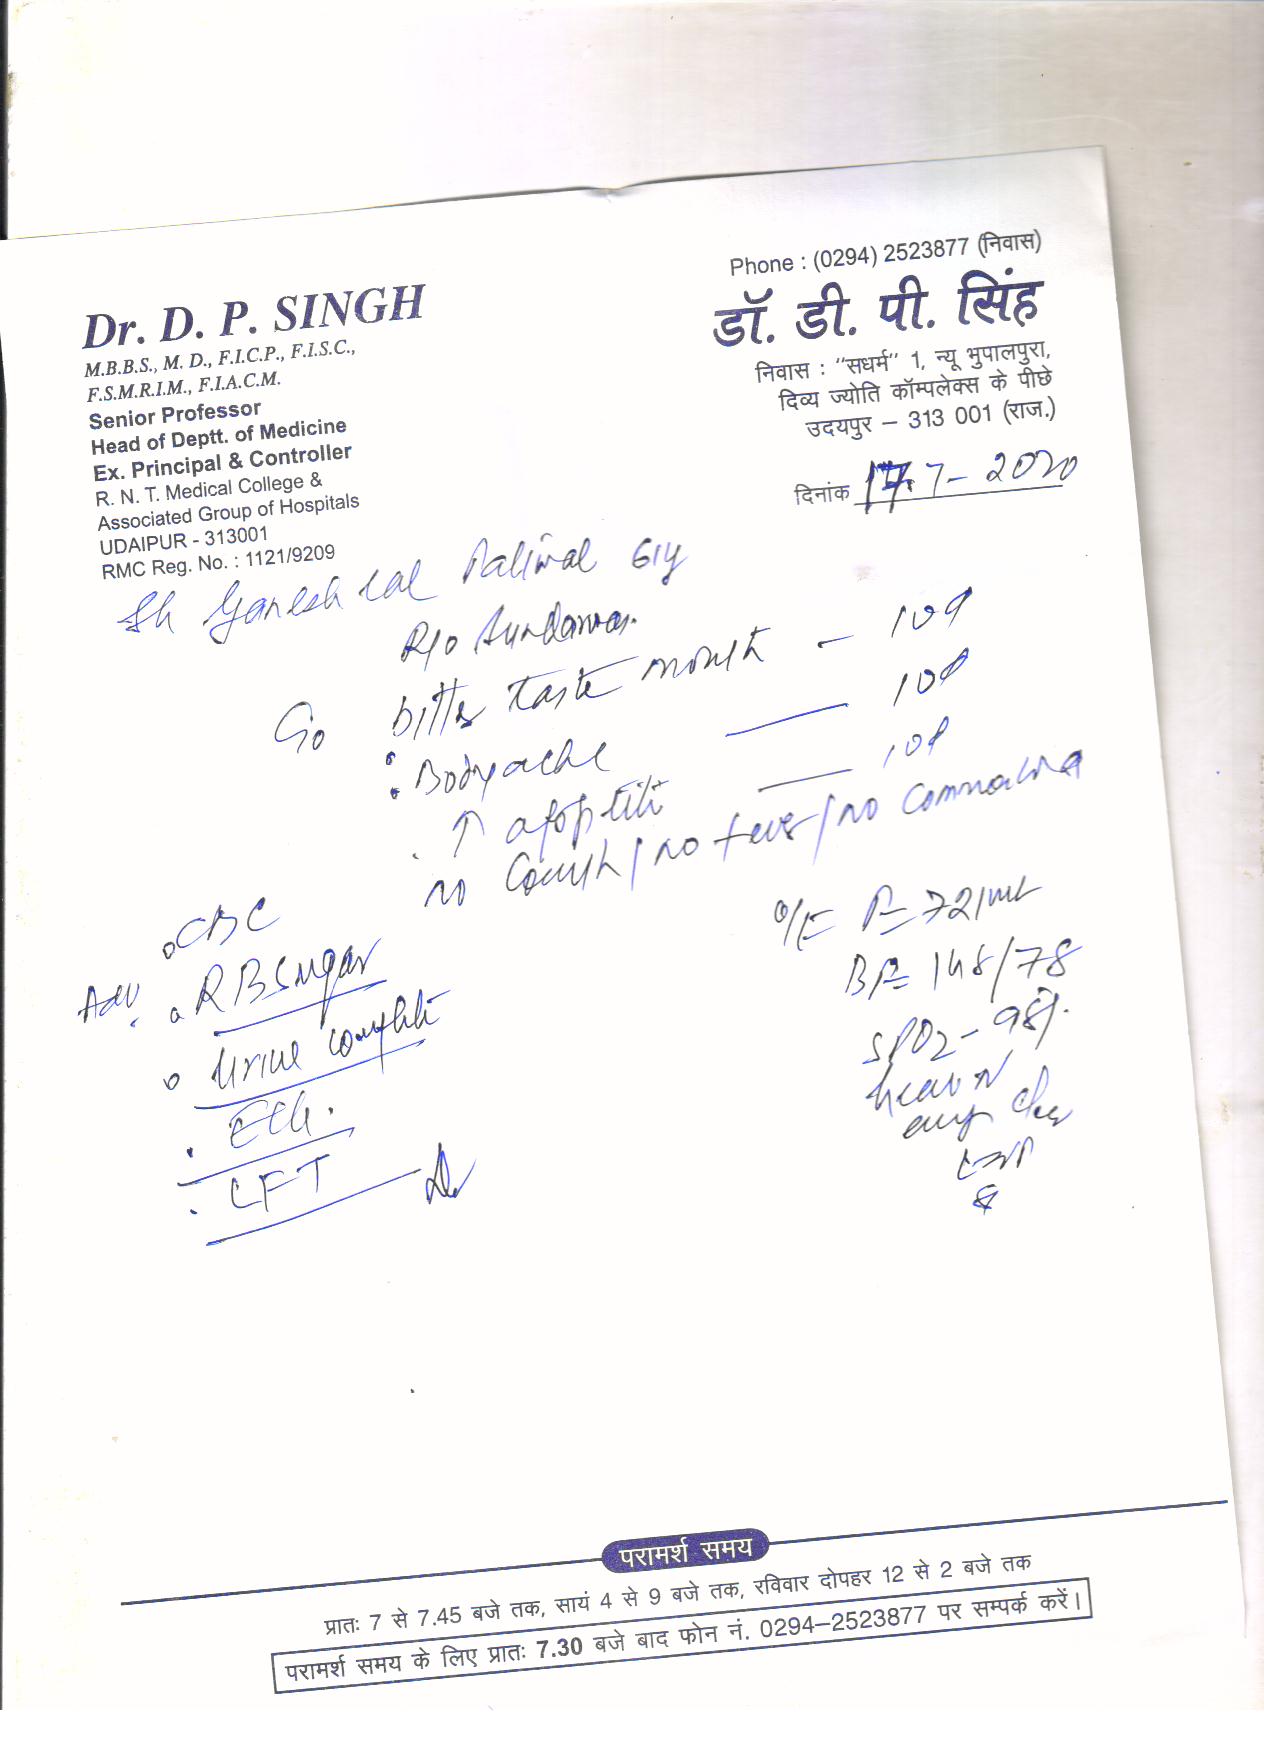 Phone : (0294) 2523877 (निवास)
Dr. D. P. SINGH
M.B.B.S., M. D., F.I.C.P., F.I.S.C.,
F.S.M.R.I.M., F.I.A.C.M.
Senior Professor
Head of Deptt. of Medicine
Ex. Principal & Controller
R. N. T. Medical College &
Associated Group of Hospitals
UDAIPUR - 313001
RMC Reg. No. : 1121/9209
डॉ. डी. पी. सिंह
निवास : "सधर्म" 1, न्यू भुपालपुरा,
दिव्य ज्योति कॉम्पलेक्स के पीछे
उदयपुर – 313 001 (राज.)
दिनांक 17.7-2020
Sh Ganesh Lal Paliwal 61y
R/o
C/o bitter taste mouth - 10d
Bodyache — 10d
↑ — 10d
no Cough / no fever / no
Adv.
CBC
R B Sugar
Urine complete
ECG.
LFT
O/E P= 72/mt
BP= 148/78
SPO2 - 98%.
heart N
परामर्श समय
प्रातः 7 से 7.45 बजे तक, सायं 4 से 9 बजे तक, रविवार दोपहर 12 से 2 बजे तक
परामर्श समय के लिए प्रातः 7.30 बजे बाद फोन नं. 0294–2523877 पर सम्पर्क करें।